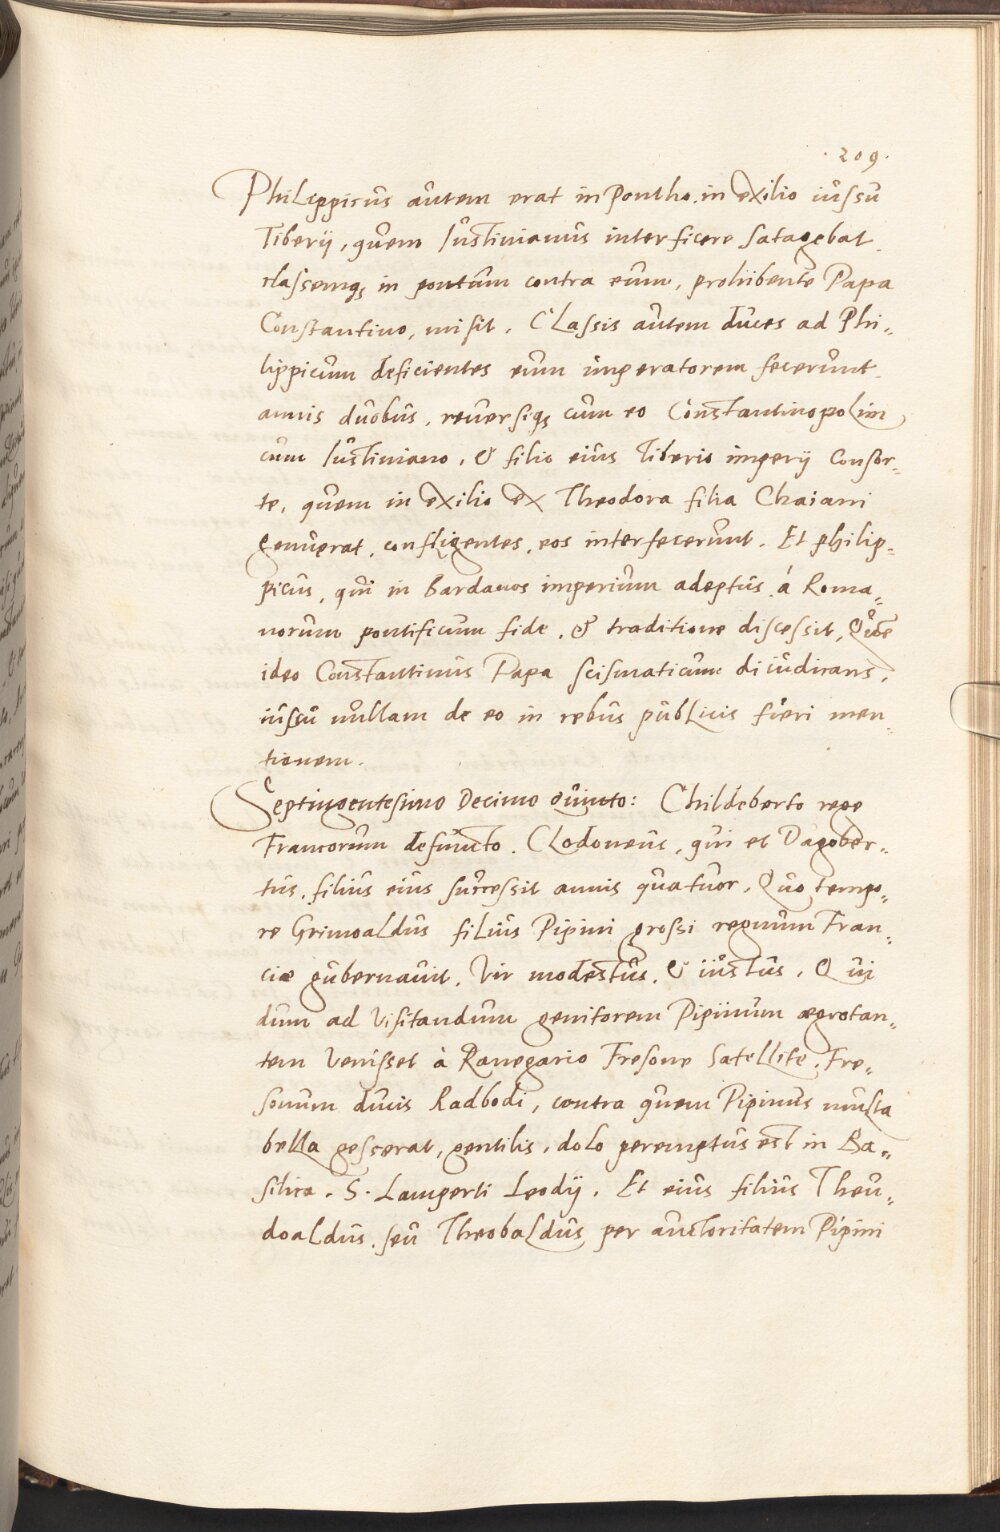 .209.
Philippicus autem erat in Pontho in exilio iussu
Tiberij, quem Iustinianus interficere satagebat
classemq; in pontum contra eum, prohibente Papa
Constantino, misit. Classis autem duces ad Phi„
lippicum deficientes eum imperatorem fecerunt
annis duobus, reuersiq; cum eo Constantinopolim
cum Iustiniano, & filio eius Tiberio imperij consor„
te, quem in exilio ex Theodora filia Chaiani
genuerat, confligentes, eos interfecerunt. Et philip„
picus, qui in Bardanos imperium adeptus á Roma„
norum pontificum fide, & traditione discessit,
ideo Constantinus Papa scismaticum diiudicans,
iussu nullam de eo in rebus publicis fieri men„
tionem.
Septingentesimo Decimo quinto: Childeberto rege
Francorum defuncto. Clodoueus, qui et Dagober„
tus, filius eius successit annis quatuor. Quo tempo„
re Grimoaldus filius Pipini grossi regnum Fran„
ciæ gubernauit. Vir modestus, & iustus. Qui
dum ad visitandum genitorem Pipinum ægrotan„
tem venisset à Ranegario Fresone Satellite, Fre„
sonum ducis Radbodi, contra quem Pipinus multa
bella gesserat, gentilis, dolo peremptus est in Ba„
silica. S. Lamperti Leodij. Et eius filius Theu„
doaldus, seu Theobaldus per auctoritatem Pipini